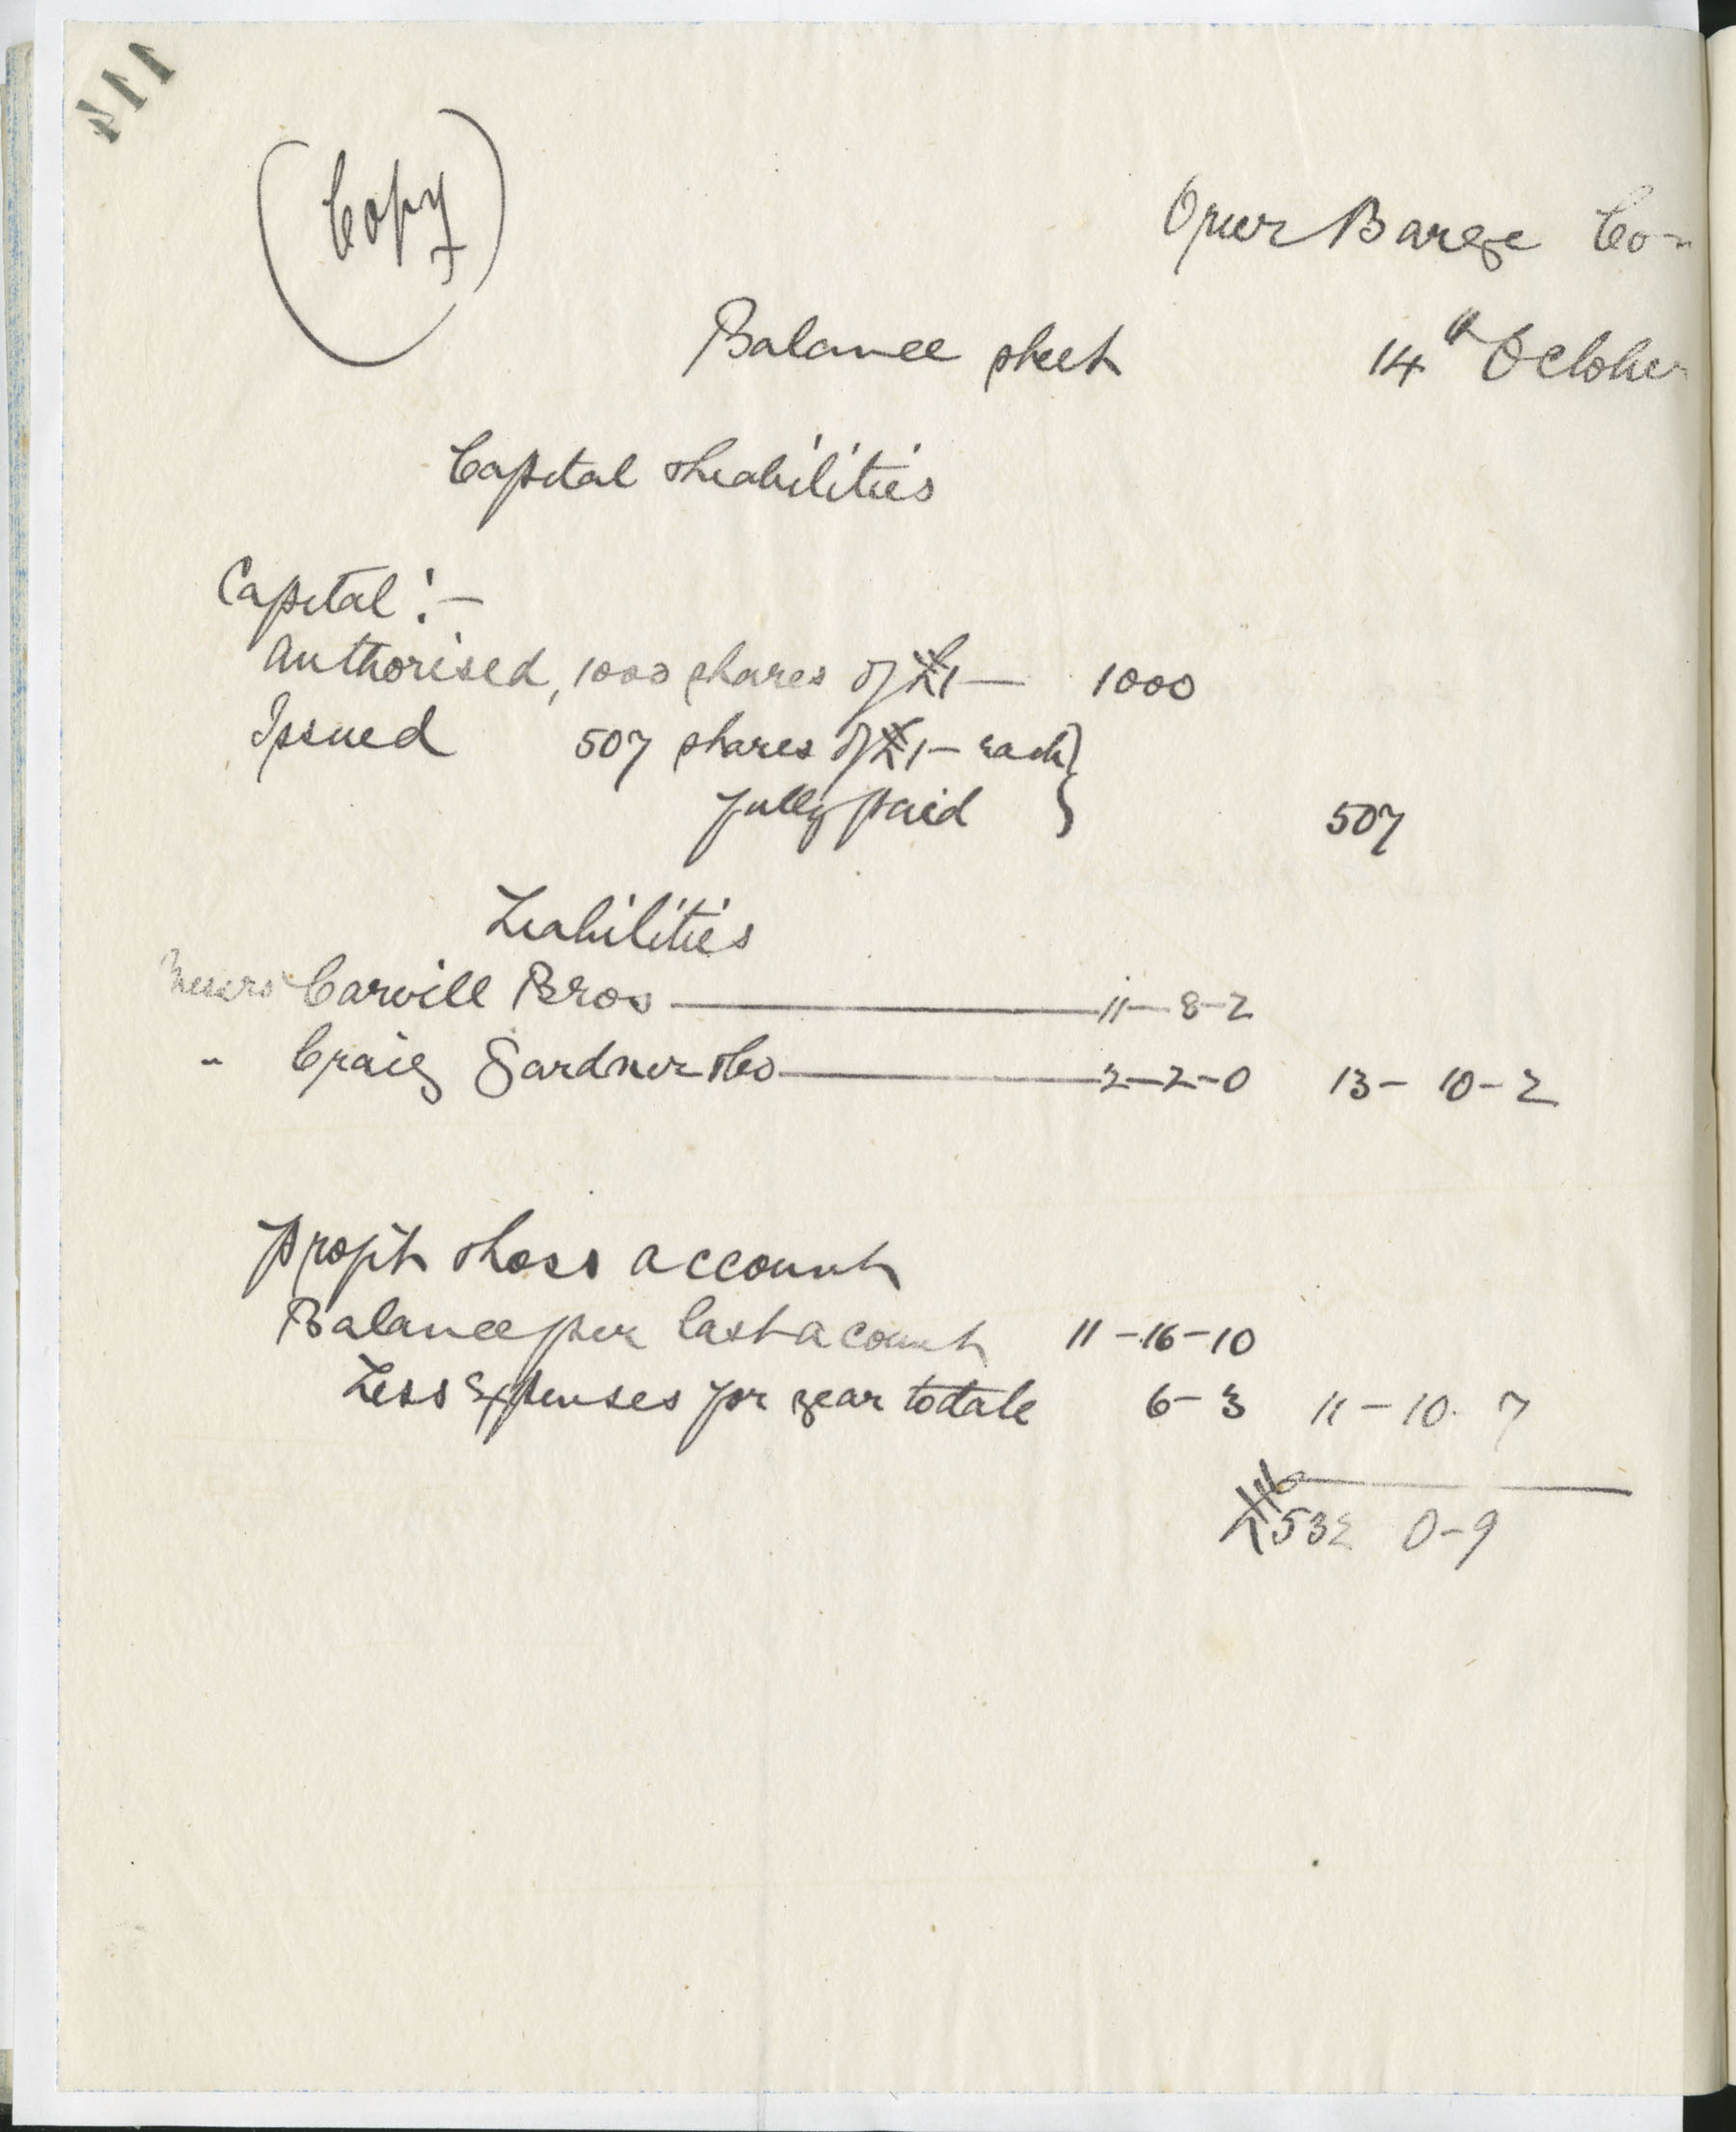 111
(Copy)
Omeath Barge Co
Balance sheet 14th October
Capital & Liabilities
Capital :-
Authorised, 1000 shares of £1 — 1000
Issued 507 shares of £1 — each
fully paid 507
Liabilities
Messrs Carvill Bros — 11 - 8 - 2
" Craig Gardner & Co — 2 - 2 - 0 13 - 10 - 2
Profit & Loss account
Balance per last acount 11 - 16 - 10
Less Expenses for year to date 6 - 3 11 - 10 7
£532 0 - 9